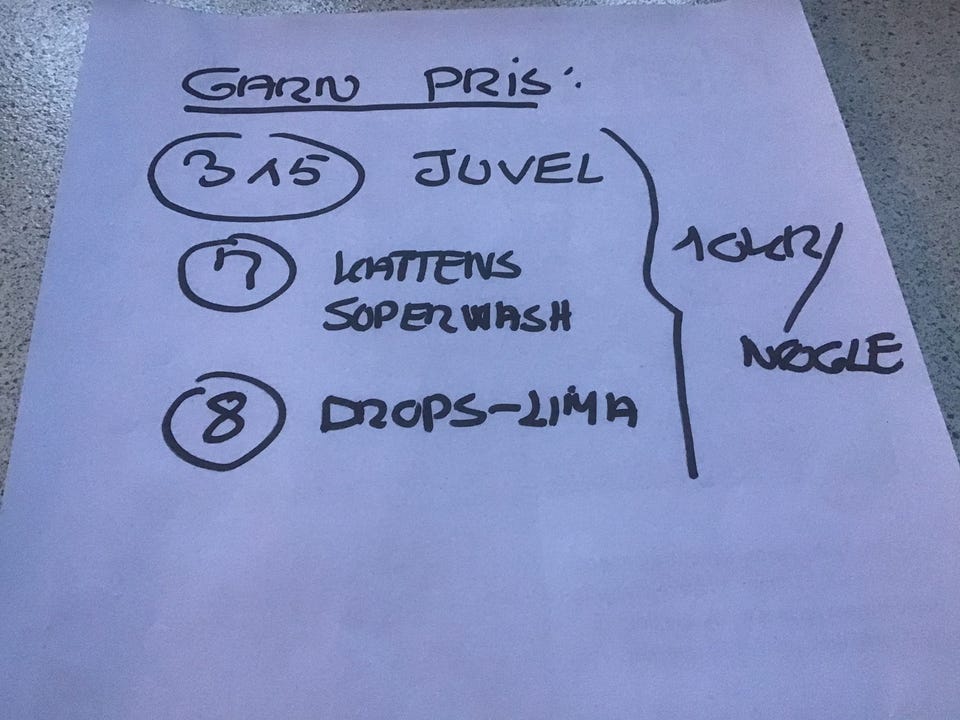 GARN PRIS:
315 JUVEL
7 KATTENS
SOPERWASH
8 DROPS-LIMA
10KR/
NØGLE